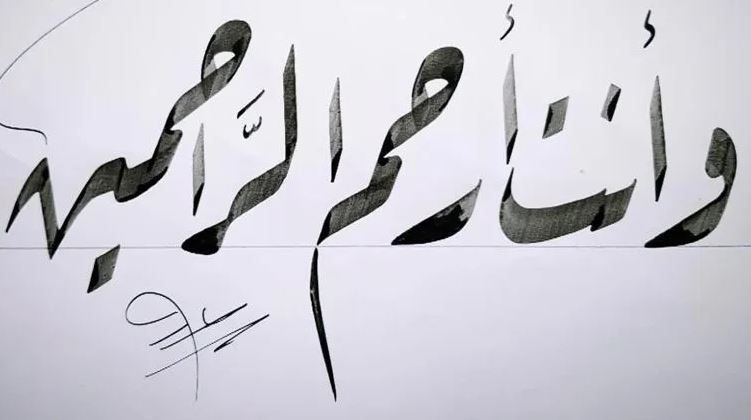 وأنت أرحم الرَّاحمين